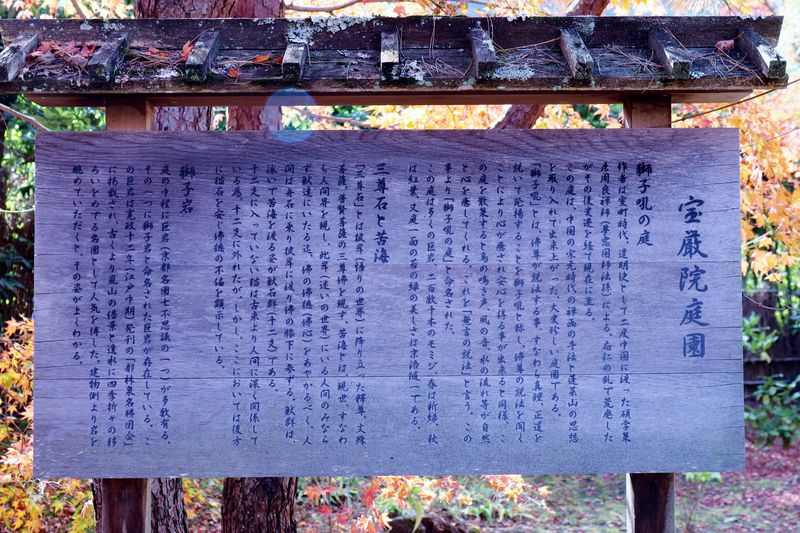 宝厳院庭園
獅子吼の庭
作者は室町時代、遣明使として二度中国に渡った碩学策
彦周良禅師(夢窓国師法孫)による。応仁の乱で荒廃した
がその後変遷を経て現在に至る。
この庭は、中国の宋元時代の禅画の手法と蓬莱山の思想
を取り入れて出来上がった、大変珍しい庭園である。
「獅子吼」とは、佛尊が説法する事、すなわち真理、正道を
説いて発揚することを獅子吼と称し、佛尊の説法を聞く
ことにより心が癒され安心を得る事が出来ると同様、こ
の庭を散策すると鳥の鳴き声、風の音、水の流れ等が自然
と心を癒してくれる。これを「無言の説法」と言う。この
事より「獅子吼の庭」と命名された。
この庭は多くの巨岩、二百数十本のモミジ、春は新緑、秋
は紅葉、又庭一面の苔の緑の美しさは京洛随一である。
三尊石と苦海
「三尊石」とは彼岸(悟りの世界)に降り立った釋尊、文殊
菩薩、普賢菩薩の三尊佛を現す。苦海とは、現世、すなわ
ち人間界を現し、此岸(迷いの世界)にいる人間のみなら
ず獣達にいたる迄、佛の佛徳(佛心)をあやかるべく、人
間は舟石に乗り彼岸に渡り佛の膝下に参ずる。獣群は、
泳いで苦海を渡る姿が獣石群(十二支)である。
十二支に入っていない猫は古来より人間に深く関係して
いる為、十二支に外れたが、しかし、ここにおいては後方
に猫石を安じ佛徳の不偏を顕示している。
獅子岩
庭の中程に巨岩(京都名園七不思議の一つ)が多数有る。
その一つに獅子岩と命名された巨岩が存在している。こ
の巨岩は寛政十二年(江戸中期)発刊の「都林泉名勝図会」
に掲載され、古くより嵐山の借景と遣水に四季折々の移
ろいをめでる名園として人気を博した。建物側より岩を
眺めていただくと、その姿がよくわかる。